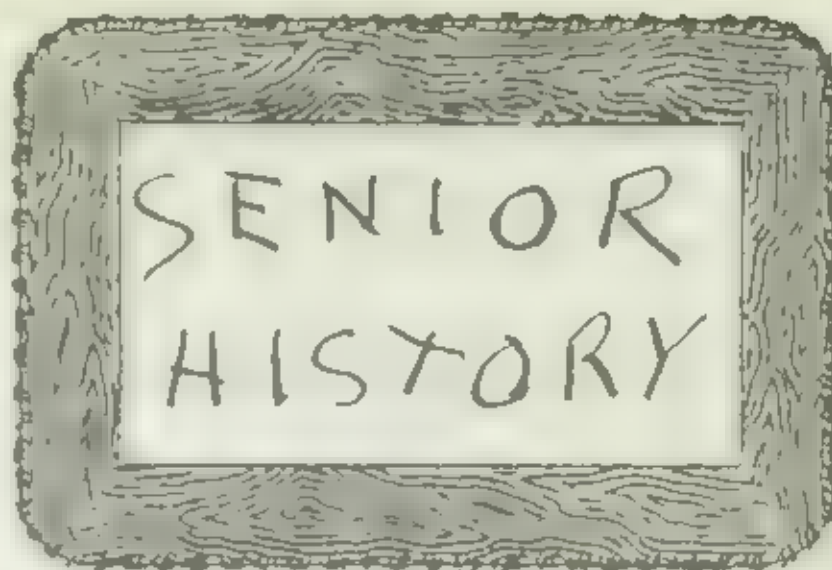 SENIOR
HISTORY